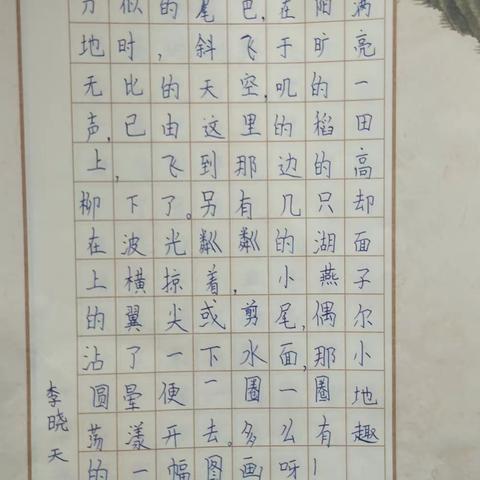 似的尾巴,在阳满
地时,斜飞于旷亮
无比的天空,叽的一
声,已由这里的稻田
上,飞到那边的高
柳下了。另有几只却
在波光粼粼的湖面
上横掠着,小燕子
的翼尖或剪尾,偶尔
沾了一下水面,那小
圆晕便一圈一圈地
荡漾开去。多么有趣
的一幅图画呀!
李晓天